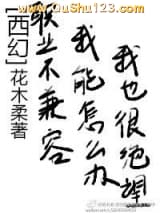 www.QuShu123.com
[西幻]花木柔著
职业不兼容
我能怎么办
我也很绝望